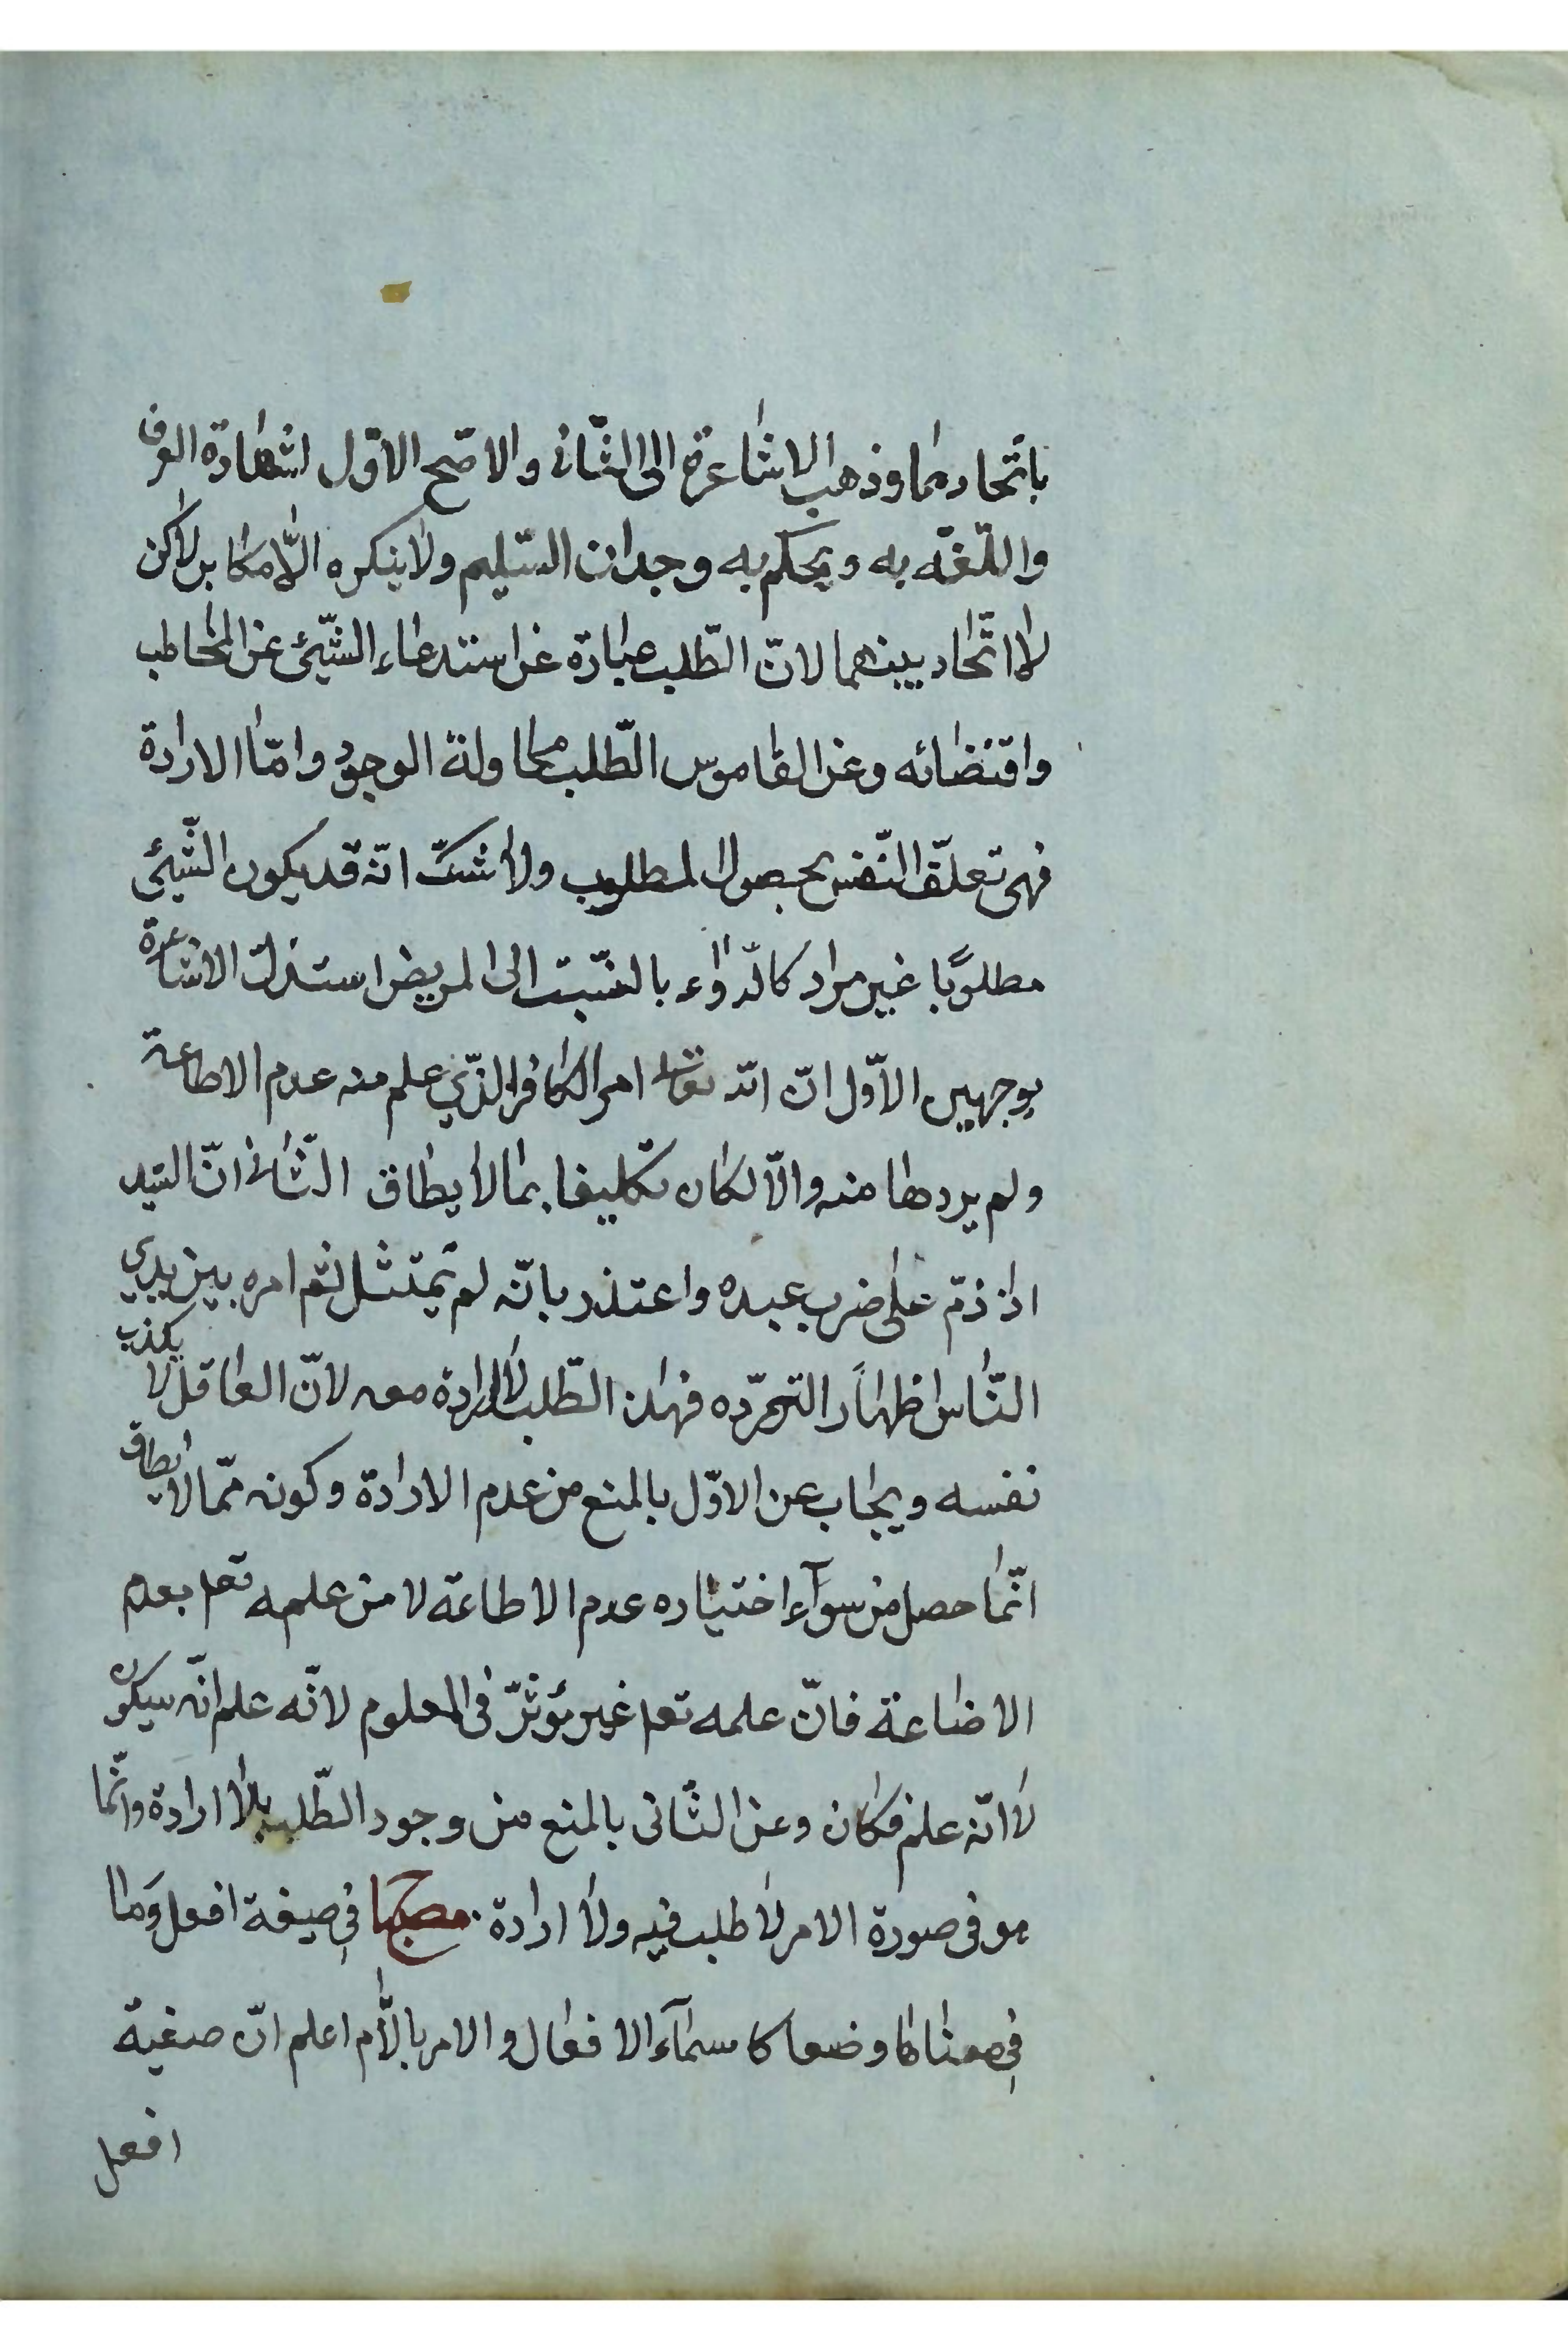 باتّحادهما وذهب الاشاعرة الى الثّانى والاصّح الاوّل لشهادة العرف
واللّغة به ويحكم به وجدان السّليم ولا ينكره الّا مكابر لاكن
لا اتّحاد بينهما لانّ الطّلب عبارة عن استدعاء الشّيئ عن المخاطب
واقتضائه وعن القاموس الطّلب محاولة الوجود وامّا الارادة
فهى تعلّق النّفس بحصول المطلوب ولا شكّ انّه قد يكون الشّيئ
مطلوبًا غير مراد كالدّواء بالنسّبت الى المريض استدلّت الاشاعرة
بوجهين الاوّل انّ الله تعالى امر الكافر الذّي علم منه عدم الاطاعة
ولم يردها منه والّا لكان تكليفا بما لا يطاق الثّانى انّ السّيد
اذا ذمّ على ضرب عبده واعتذر بانّه لم يمتثل ثم امره بين يدي
النّاس اظهارًا لتمرّده فهذا الطّلب لا ارادة معه لانّ العاقل لا يكذب
نفسه ويجاب عن الاوّل بالمنع من عدم الارادة وكونه ممّا لا يطاق
انّما حصل من سوآء اختياره عدم الاطاعة لا من علمه تعم بعدم
الاضاعة فانّ علمه تعم غير مؤثرّ فى المعلوم لانّه علم انّه سيكون
لا انّه علم فكان وعن الثّانى بالمنع من وجود الطّلب بلا ارادة وانّما
هو فى صورة الامر لا طلب فيه ولا ارادة في صيغة افعل وَما
في معناها وضعا كاسمآء الافعال والامر باللّام اعلم انّ صغية
افعل